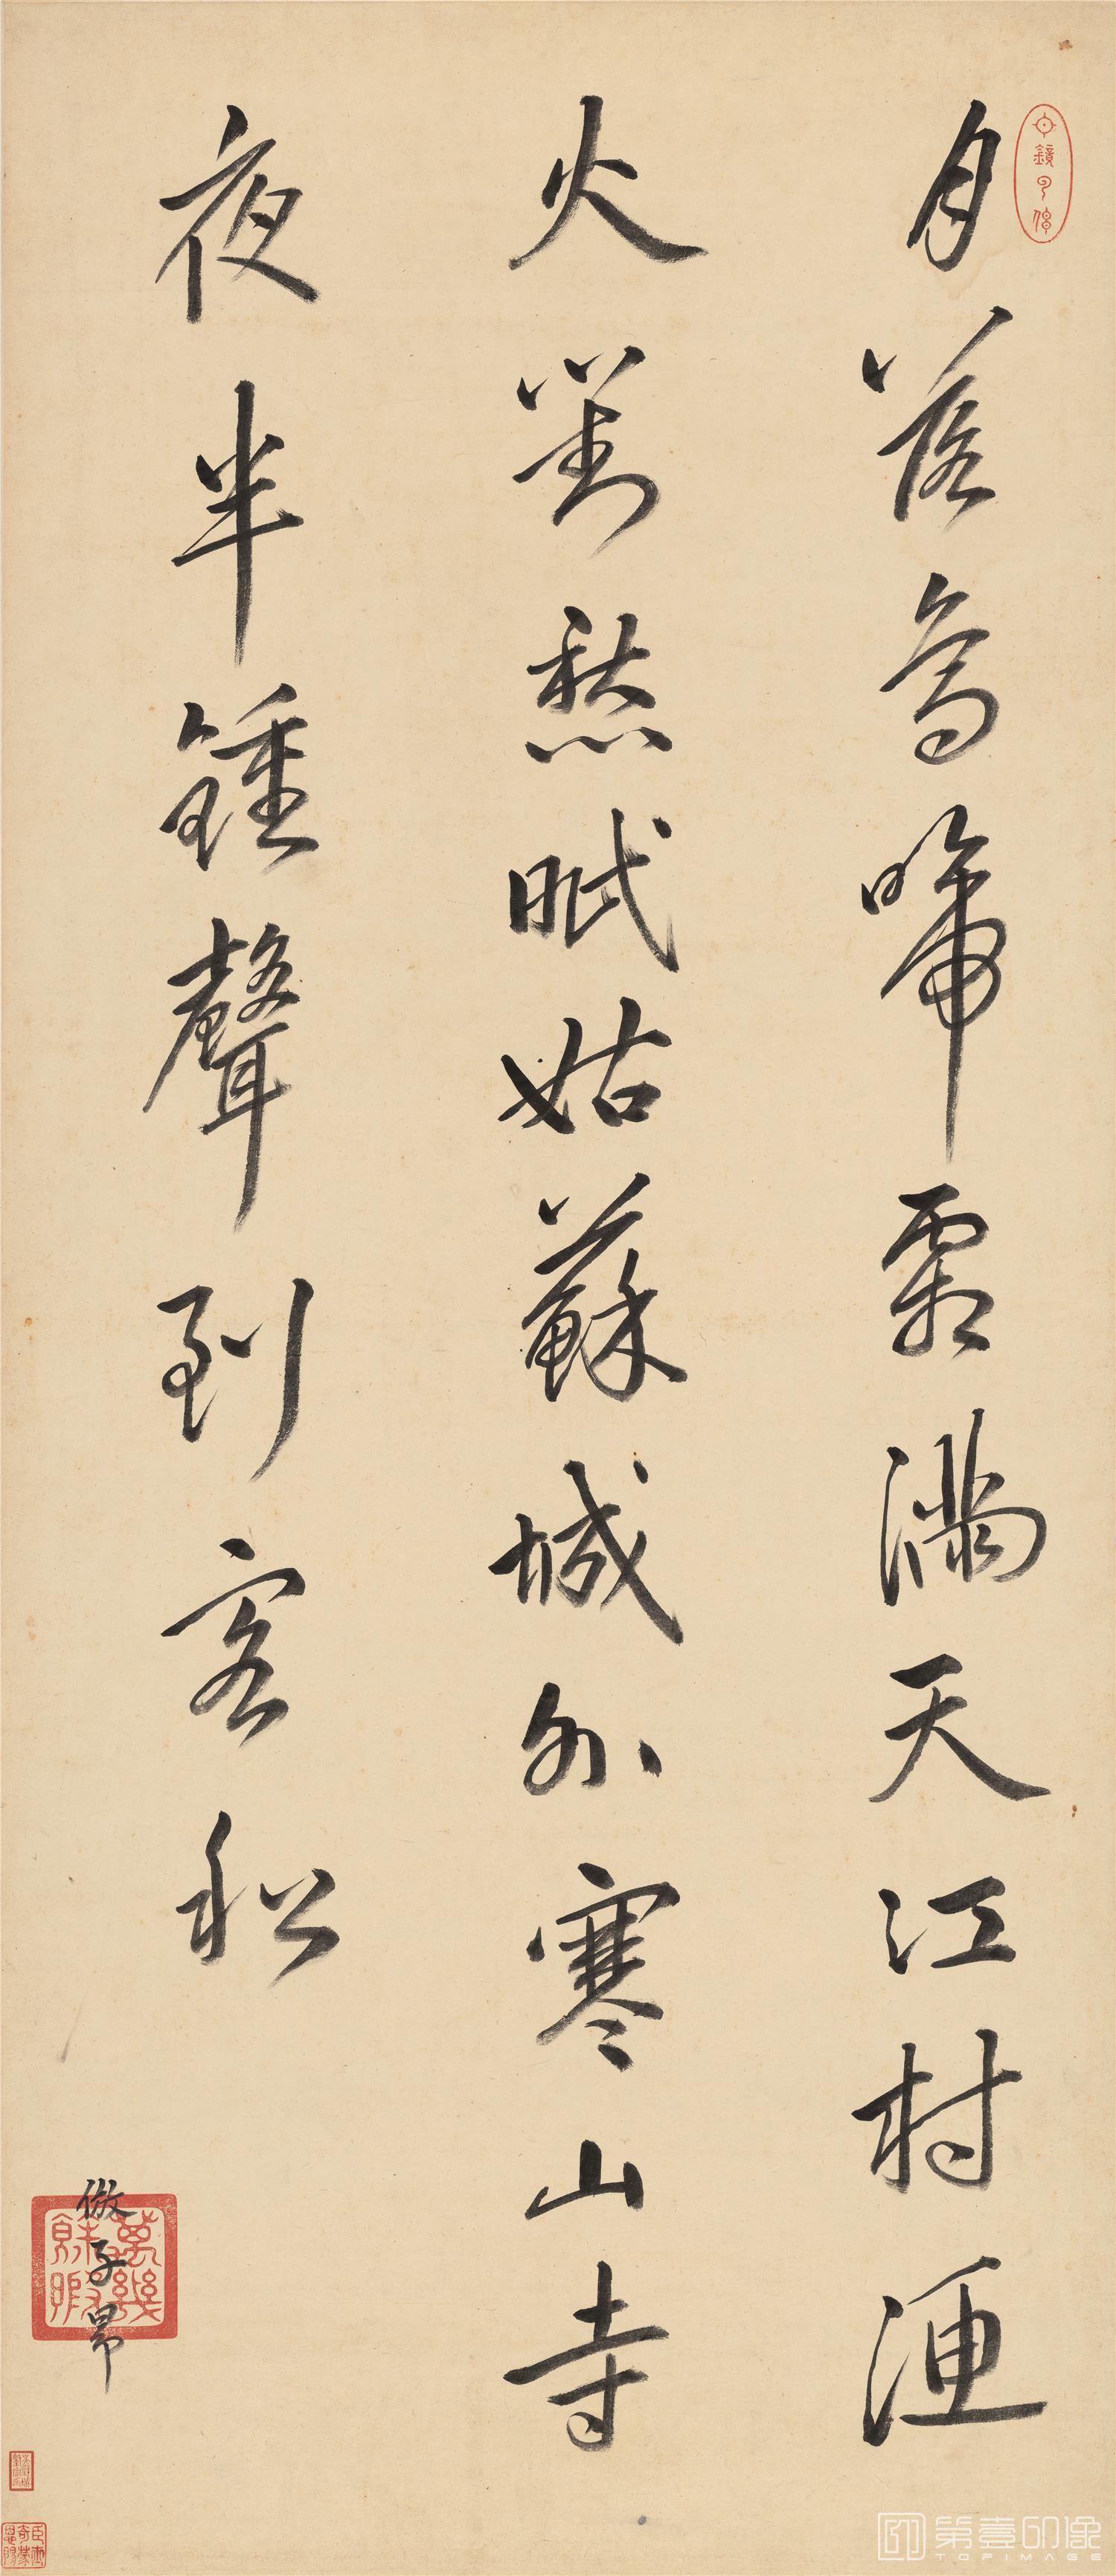 月落烏啼霜滿天江村漁
火對愁眠姑蘇城外寒山寺
夜半鍾聲到客船
倣子昂
萬幾餘暇
第壹印像
TOPIMAGE